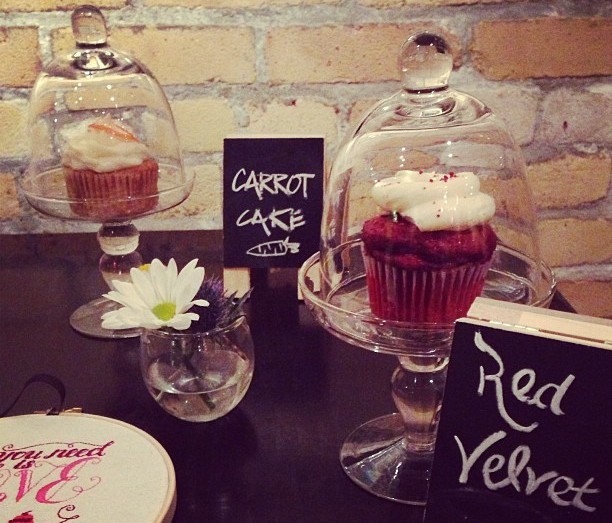 CARROT
CAKE
Red
Velvet
you need
is